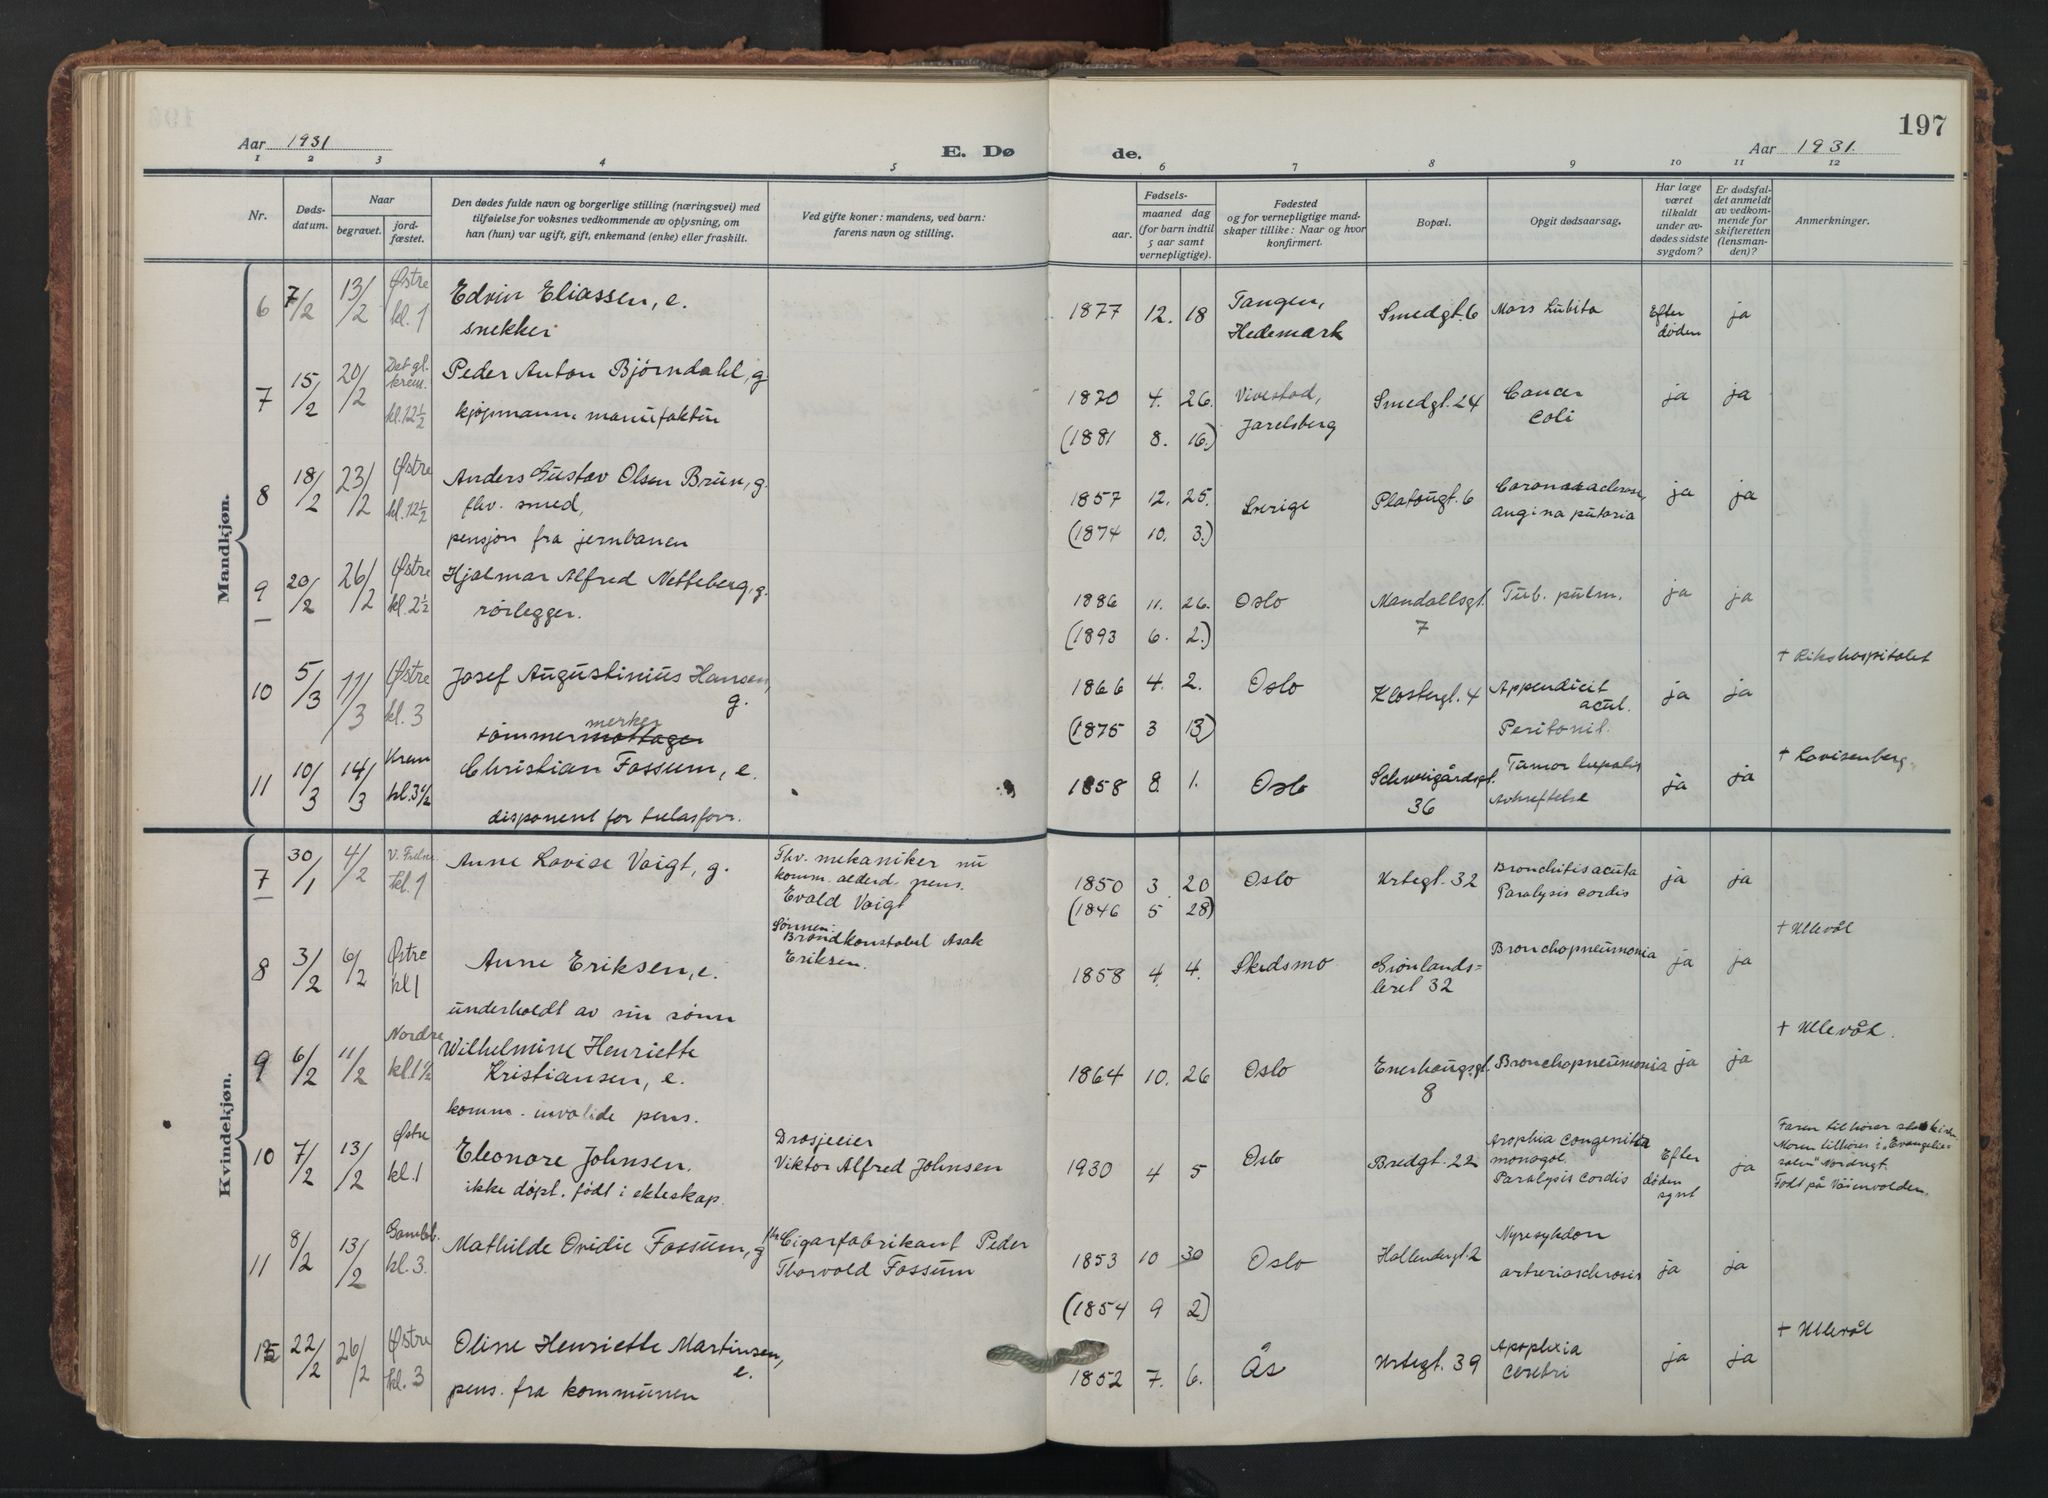 197
Aar 1931
E. Dø
de.
Aar 1931.
1 2 3 4 5 6 7 8 9 10 11 12
Nr.
Døds-
datum.
Naar
begravet.
jord-
fæstet.
Den dødes fulde navn og borgerlige stilling (næringsvei) med
tilføielse for voksnes vedkommende av oplysning, om
han (hun) var ugift, gift, enkemand (enke) eller fraskilt.
Ved gifte koner: mandens, ved barn:
farens navn og stilling.
Fødsels-
aar.
maaned dag
(for barn indtil
5 aar samt
vernepligtige).
Fødested
og for vernepligtige mand-
skaper tillike: Naar og hvor
konfirmert.
Bopæl.
Opgit dødsaarsag.
Har læge
været
tilkaldt
under av-
dødes sidste
sygdom?
Er dødsfal-
det anmeldt
av vedkom-
mende for
skifteretten
(lensman-
den)?
Anmerkninger.
Mandkjøn.
6 7/2 13/2 Østre kl. 1 Edvin Eliassen, e. 1877 12. 18 Tangen, Smedgt. 6 Mors Subita Efter ja
snekker Hedemark døden
7 15/2 20/2 Det gl. krem. kl. 12½ Peder Anton Bjørndahl, g. 1870 4. 26. Vivestad, Smedgt. 24 Cancer ja ja
kjøpmann, manufaktur (1881 8. 16.) Jarelsberg Coli
8 18/2 23/2 Østre kl. 12½ Anders Gustav Olsen Brun, g. 1857 12. 25. Sverige Platougt. 6 ja ja
fhv. smed, Angina
pensjon fra jernbanen (1874 10. 3.)
9 20/2 26/2 Østre kl. 2½ Hjalmar Alfred Netteberg, g. 1886 11. 26. Oslo Mandallsgt. Tub. pulm. ja ja
rørlegger. (1893 6. 2.) 7
10 5/3 11/3 Østre kl. 3 Josef Augustinius Hansen, 1866 4. 2. Oslo Klostergt. 4 Appendicit ja ja + Rikshospitalet
g. acut.
merker
tømmermottager (1875 3 13) Peritonit.
11 10/3 14/3 Krem kl. 3½ Christian Fossum, e. 1858 8. 1. Oslo Schweigårdsgt. Tumor hepatis ja ja + Lovisenberg.
disponent for 36 Avkreftelse
Kvindekjøn.
7 30/1 4/2 V. Frelser. kl. 1 Anne Lovise Voigt, g. Fhv. mekaniker nu 1850 3 20 Oslo Urtegt. 32 Bronchitis acuta ja ja
komm. alderd. pens. Paralysis cordis
Evald Voigt (1846 5 28)
8 3/2 6/2 Østre kl 1 Anne Eriksen, e. Sønnen: 1858 4. 4. Skedsmo Grønlands- Bronchopneumonia ja ja + Ullevål
Brandkonstabel Asak leret 32
Eriksen.
underholdt av sin sønn
9 6/2 11/2 Nordre kl. 1½ Wilhelmine Henriette 1864 10. 26 Oslo Enerhaugsgt. Bronchopneumonia ja ja + Ullevål.
Kristiansen, e. 8
komm. invalide pens.
10 7/2 13/2 Østre kl. 1 Eleonore Johnsen. Drosjeeier 1930 4 5 Oslo Bredgt. 22 congenita Efter ja Faren tilhører
ikke døpt. født i ekteskap. Viktor Alfred Johnsen mongol. døden Moren tilhører i "Evangelie-
Paralysis cordis salen" Nordregt.
Født på
11 8/2 13/2 Gamleb. kl. 3. Mathilde Ovidie Fossum, g Cigarfabrikant Peder 1853 10 30 Oslo Hollendergt. 2 Nyresykdom ja ja
Thorvald Fossum (1854 9 2)
12 22/2 26/2 Østre kl. 3 Oline Henriette Martinsen, 1852 7. 6. Ås Urtegt. 39 Apoplexia ja ja + Ullevål
e. cerebri
pens. fra kommunen